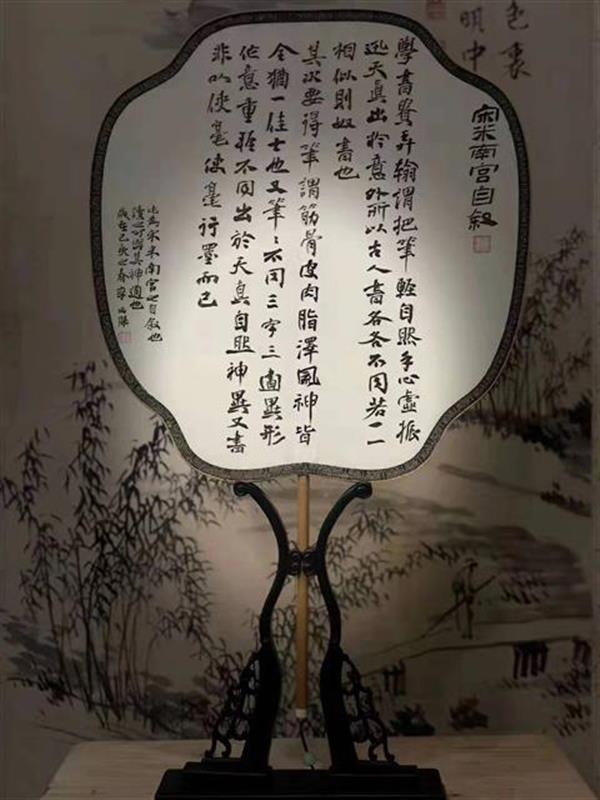 宋米南宫自叙
學書貴弄翰謂把筆輕自然手心虛振
迅天真出於意外所以古人書各各不同若一一
相似則奴書也
其次要得筆謂筋骨皮肉脂澤風神皆
全猶一佳士也又筆〻不同三字三畫異形
作意重輕不同出於天真自然神異又書
非以使毫使毫行墨而已
此為宋米南宮之自叙也
讀之可游其神道也
歲在己亥之春
色裏
明中